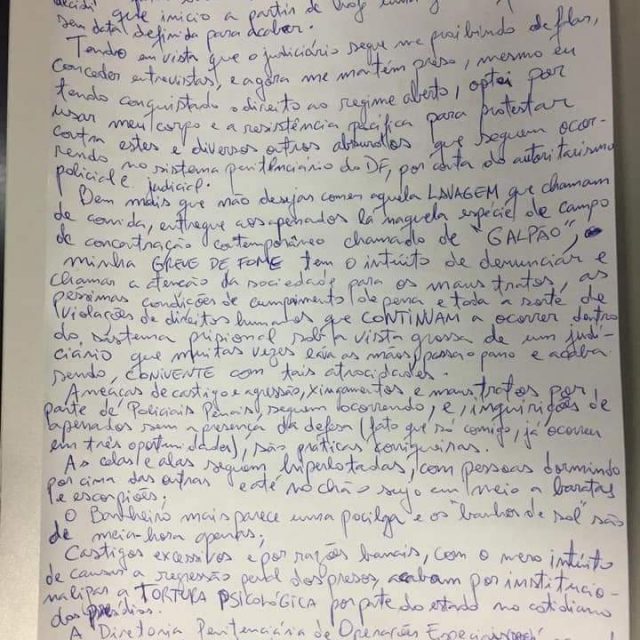 decidi que inicio a partir de hoje uma
sem data definida para acabar.
Tendo em vista que o judiciário segue me proibindo de falar,
conceder entrevistas, e agora me mantém preso, mesmo eu
tendo conquistado o direito ao regime aberto, optei por
usar meu corpo e a resistência pacífica para protestar
contra estes e diversos outros absurdos que seguem ocor-
rendo no sistema penitênciário do DF, por conta do autoritarismo
policial e judicial.
Bem mais que não desejar comer aquela LAVAGEM que chamam
de comida, entregue aos apenados lá naquela espécie de campo
de concentração contemporâneo chamado de "GALPÃO", a
minha GREVE DE FOME tem o intúito de denunciar e
chamar a atenção da sociedade para os maus tratos, as
péssimas condições de cumprimento de pena e toda a sorte de
violações de direitos humanos que CONTINUAM a ocorrer dentro
do sistema prisional sob a vista grossa de um judi-
ciário que muitas vezes lava as mãos, passa o pano e acaba
sendo, CONIVENTE com tais atrocidades.
Ameaças de castigo e agressão, xingamentos, e maus tratos por
parte de Policiais Penais, seguem ocorrendo, e, inquirições de
apenados sem a presença da defesa (fato que só comigo, já ocorreu
em três oportunidades), são práticas corriqueiras.
As celas e alas seguem hiperlotadas, com pessoas dormindo
por cima das outras e até no chão sujo em meio a baratas
e escorpiões;
O Banheiro mais parece uma pocilga e os "banhos de sol" são
de meia-hora apenas;
Castigos excessivos e por razões banais, com o mero intúito
de causar a regressão penal dos presos, acabam por institucio-
nalizar a TORTURA PSICOLÓGICA por parte do estado no cotidiano
dos presídios.
A Diretoria Penitenciária de Operações Especiais